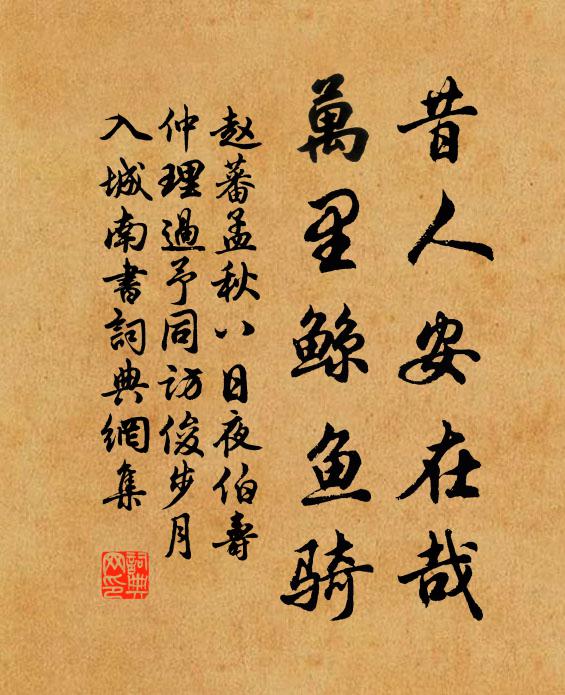 昔人安在哉
萬里鲸鱼骑
赵蕃孟秋八日夜伯壽
仲理過予同访俊步月
入城南書詞典網集
詞典网印